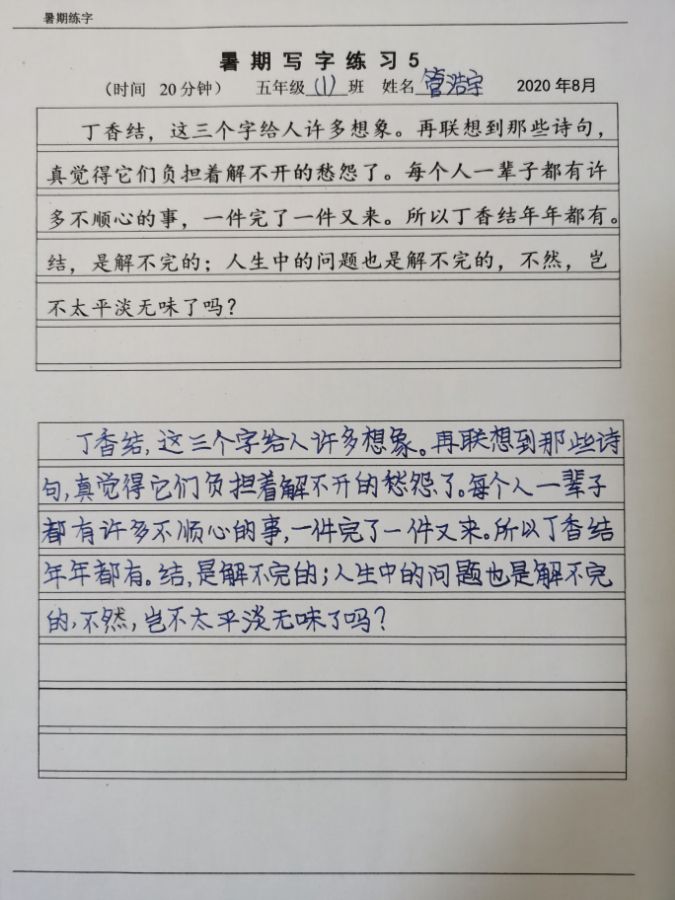 暑期练字
暑期写字练习5
（时间 20分钟） 五年级(1)班 姓名管浩宇 2020年8月
丁香结，这三个字给人许多想象。再联想到那些诗句，
真觉得它们负担着解不开的愁怨了。每个人一辈子都有许
多不顺心的事，一件完了一件又来。所以丁香结年年都有。
结，是解不完的；人生中的问题也是解不完的，不然，岂
不太平淡无味了吗？
丁香结，这三个字给人许多想象。再联想到那些诗
句，真觉得它们负担着解不开的愁怨了。每个人一辈子
都有许多不顺心的事，一件完了一件又来。所以丁香结
年年都有。结，是解不完的；人生中的问题也是解不完
的，不然，岂不太平淡无味了吗？